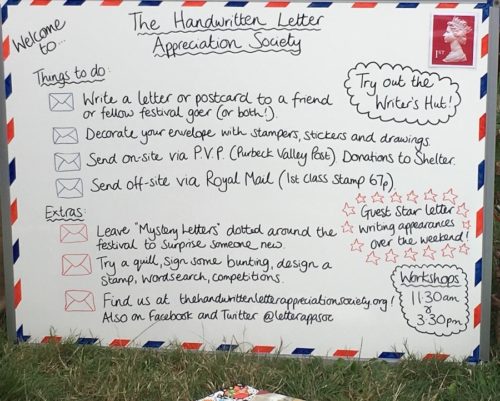 Welcome to...
The Handwritten Letter
Appreciation Society
1ST
Things to do:
Write a letter or postcard to a friend
or fellow festival goer (or both!).
Decorate your envelope with stampers, stickers and drawings.
Send on-site via P.V.P. (Purbeck Valley Post) Donations to Shelter.
Send off-site via Royal Mail (1st Class Stamp 67p).
Try out the
Writer's Hut!
Extras:
Leave "Mystery Letters" dotted around the
festival to surprise someone new.
Try a quill, sign some bunting, design a
stamp, wordsearch, competitions.
Find us at thehandwrittenletterappreciationsociety.org/
Also on Facebook and Twitter @letterappsoc
Guest Star letter
writing appearances
over the weekend!
Workshops
11:30am
or
3:30pm